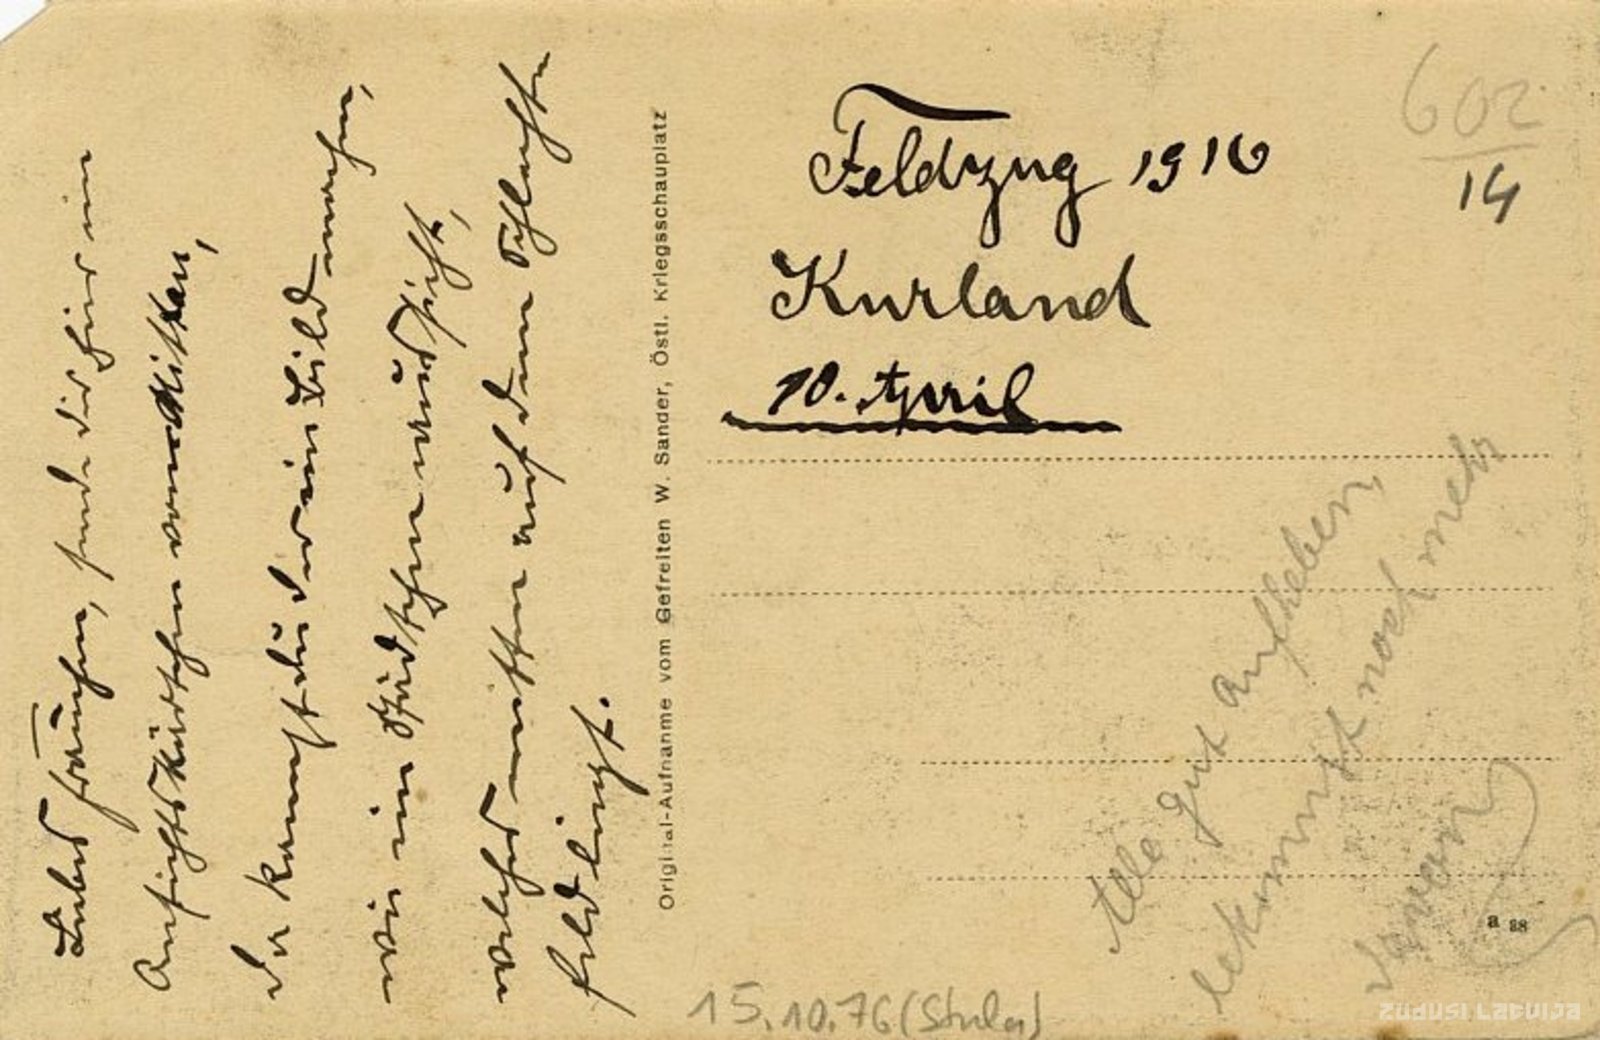 Liebes Frauchen, sende dir hier ein
Ansichtskärtchen von Mitau,
da kannst du dir ein Bild machen,
wie ein Städtchen aussieht,
welches mitten auf dem Schlacht
feld liegt.
Original-Aufnahme vom Gefreiten W. Sander, Östl. Kriegsschauplatz
Feldzug 1916
Kurland
10. April
602
14
Alle gut aufheben,
bekommst noch mehr
davon
a 88
15.10.76 (Stula)
ZUDUSI LATVIJA